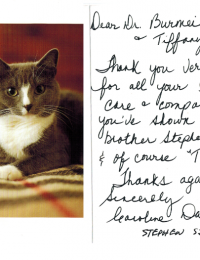 Dear Dr. Burmei
& Tiffany
Thank you ver
for all your
Care & compa
you've shown
Brother Stephe
& of course "T
Thanks aga
Sincerely
Caroline Da
STEPHEN